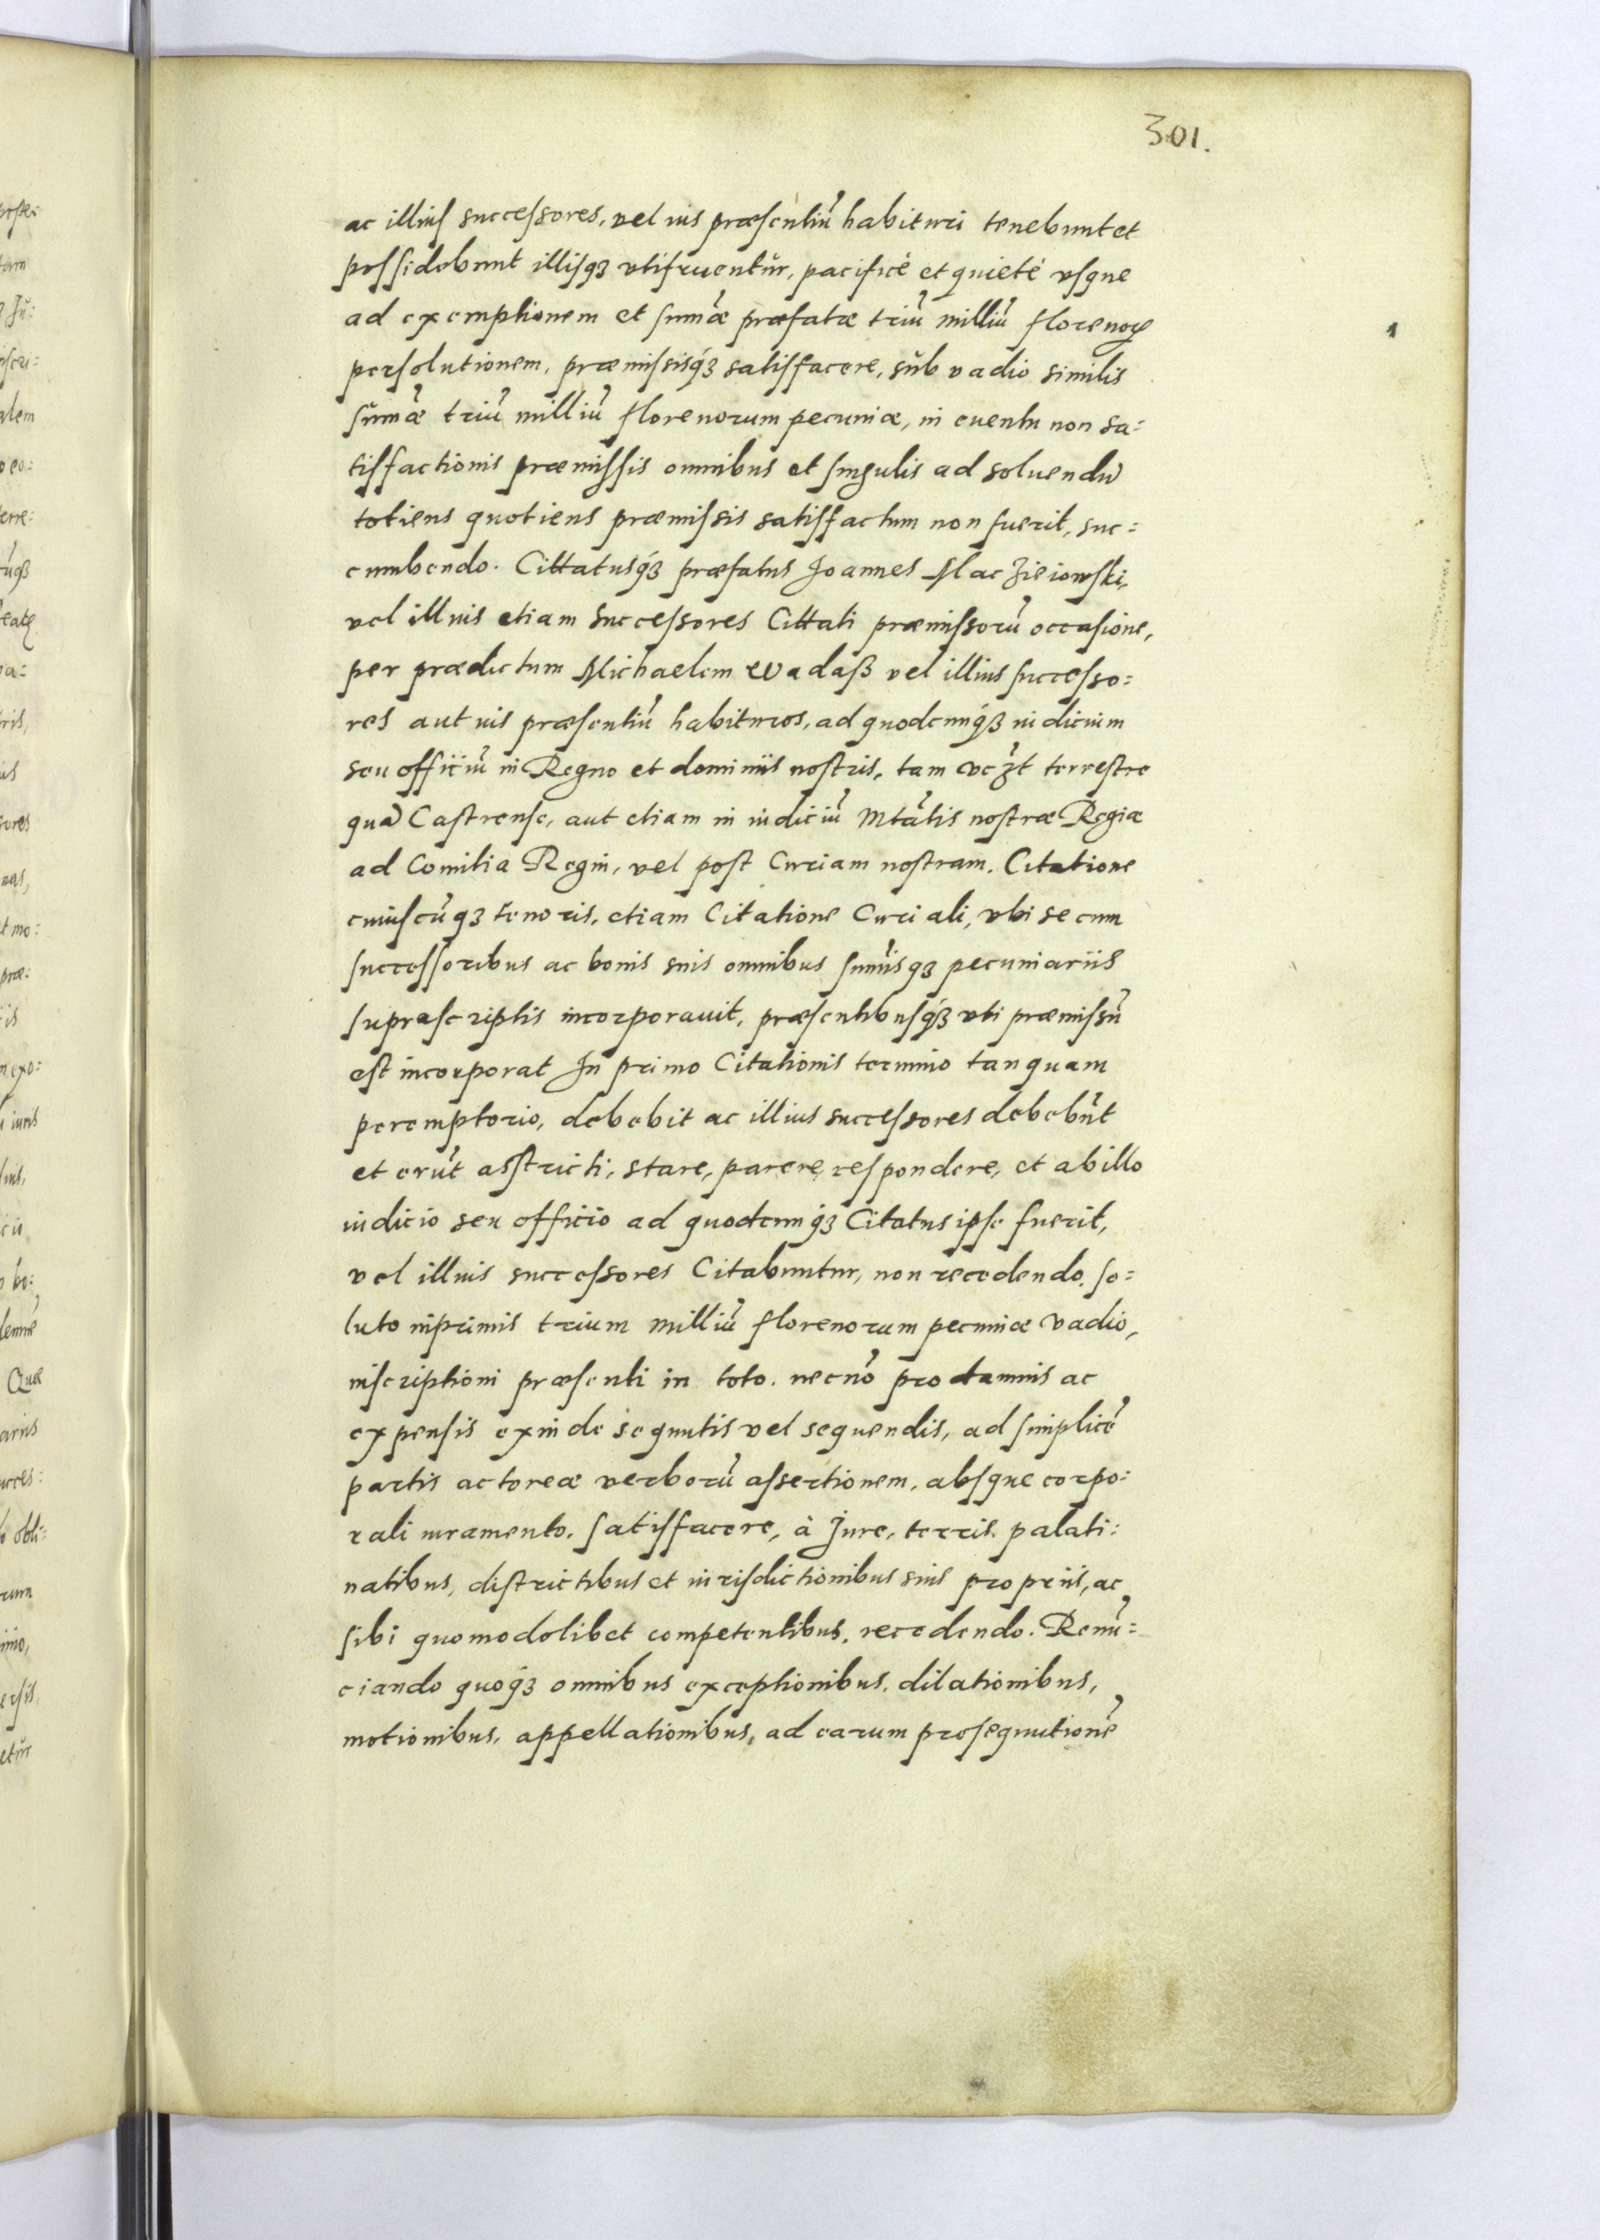 301.
ac illius successores, vel ius præsentiũ habituri tenebunt et
possidebunt illisqȝ vtifruentŭr, pacificè et quietè vsque
ad exemptionem et sum̃æ præfatæ triũ milliũ florenoꝝ
persolutionem, præmissisqȝ́ satisfacere, sŭb vadio similis
sŭm̃æ triũ milliũ florenorum pecuniæ, in euentu non sa:
tisfactionis præmissis omnibus et singulis ad soluendũ
totiens quotiens præmissis satisfactum non fuerit, suc:
cumbendo. Cittatusqȝ́ præfatus Joannes Maczieiowski,
vel illius etiam successores Cittati præmissorũ occasione,
per prædictum Michaelem Wadasß vel illius successo:
res aut ius præsentiũ habituros, ad quodcunqȝ́ iudicium
seu officiũ in Regno et dominiis nostris, tam vcȝ̃t terrestre
quã Castrense, aut etiam in iudiciũ Mtãtis nostræ Regiæ
ad Comitia Regni, vel post Curiam nostram. Citatione
cuiuscũqȝ tenoris, etiam Citatione Curiali, vbi se cum
successoribus ac bonis suis omnibus sum̃isqȝ pecuniariis
suprascriptis incorporauit, præsentibusqȝ́ vti præmissũ
est incorporat In primo Citationis termino tanquam
peremptorio, debebit ac illius successores debebũt
et erũt asstricti, stare, parere, respondere, et ab illo
iudicio seu officio ad quodcunqȝ́ Citatus ipse fuerit,
vel illius successores Citabuntur, non recedendo. so:
luto inprimis trium milliũ florenorum pecuniæ vadio,
inscriptioni præsenti in toto. necnõ pro damnis ac
expensis exinde sequutis vel sequendis, ad simplicẽ
partis actoreæ verborũ assertionem, absque corpo:
rali iuramento. satisfacere, à Jure, terris. palati:
natibus, districtibus et iurisdictionibus suis propriis, ac
sibi quomodolibet competentibus, recedendo. Renũ:
ciando quoqȝ́ omnibus exceptionibus, dilationibus,
motionibus, appellationibus, ad earum prosequutionẽ